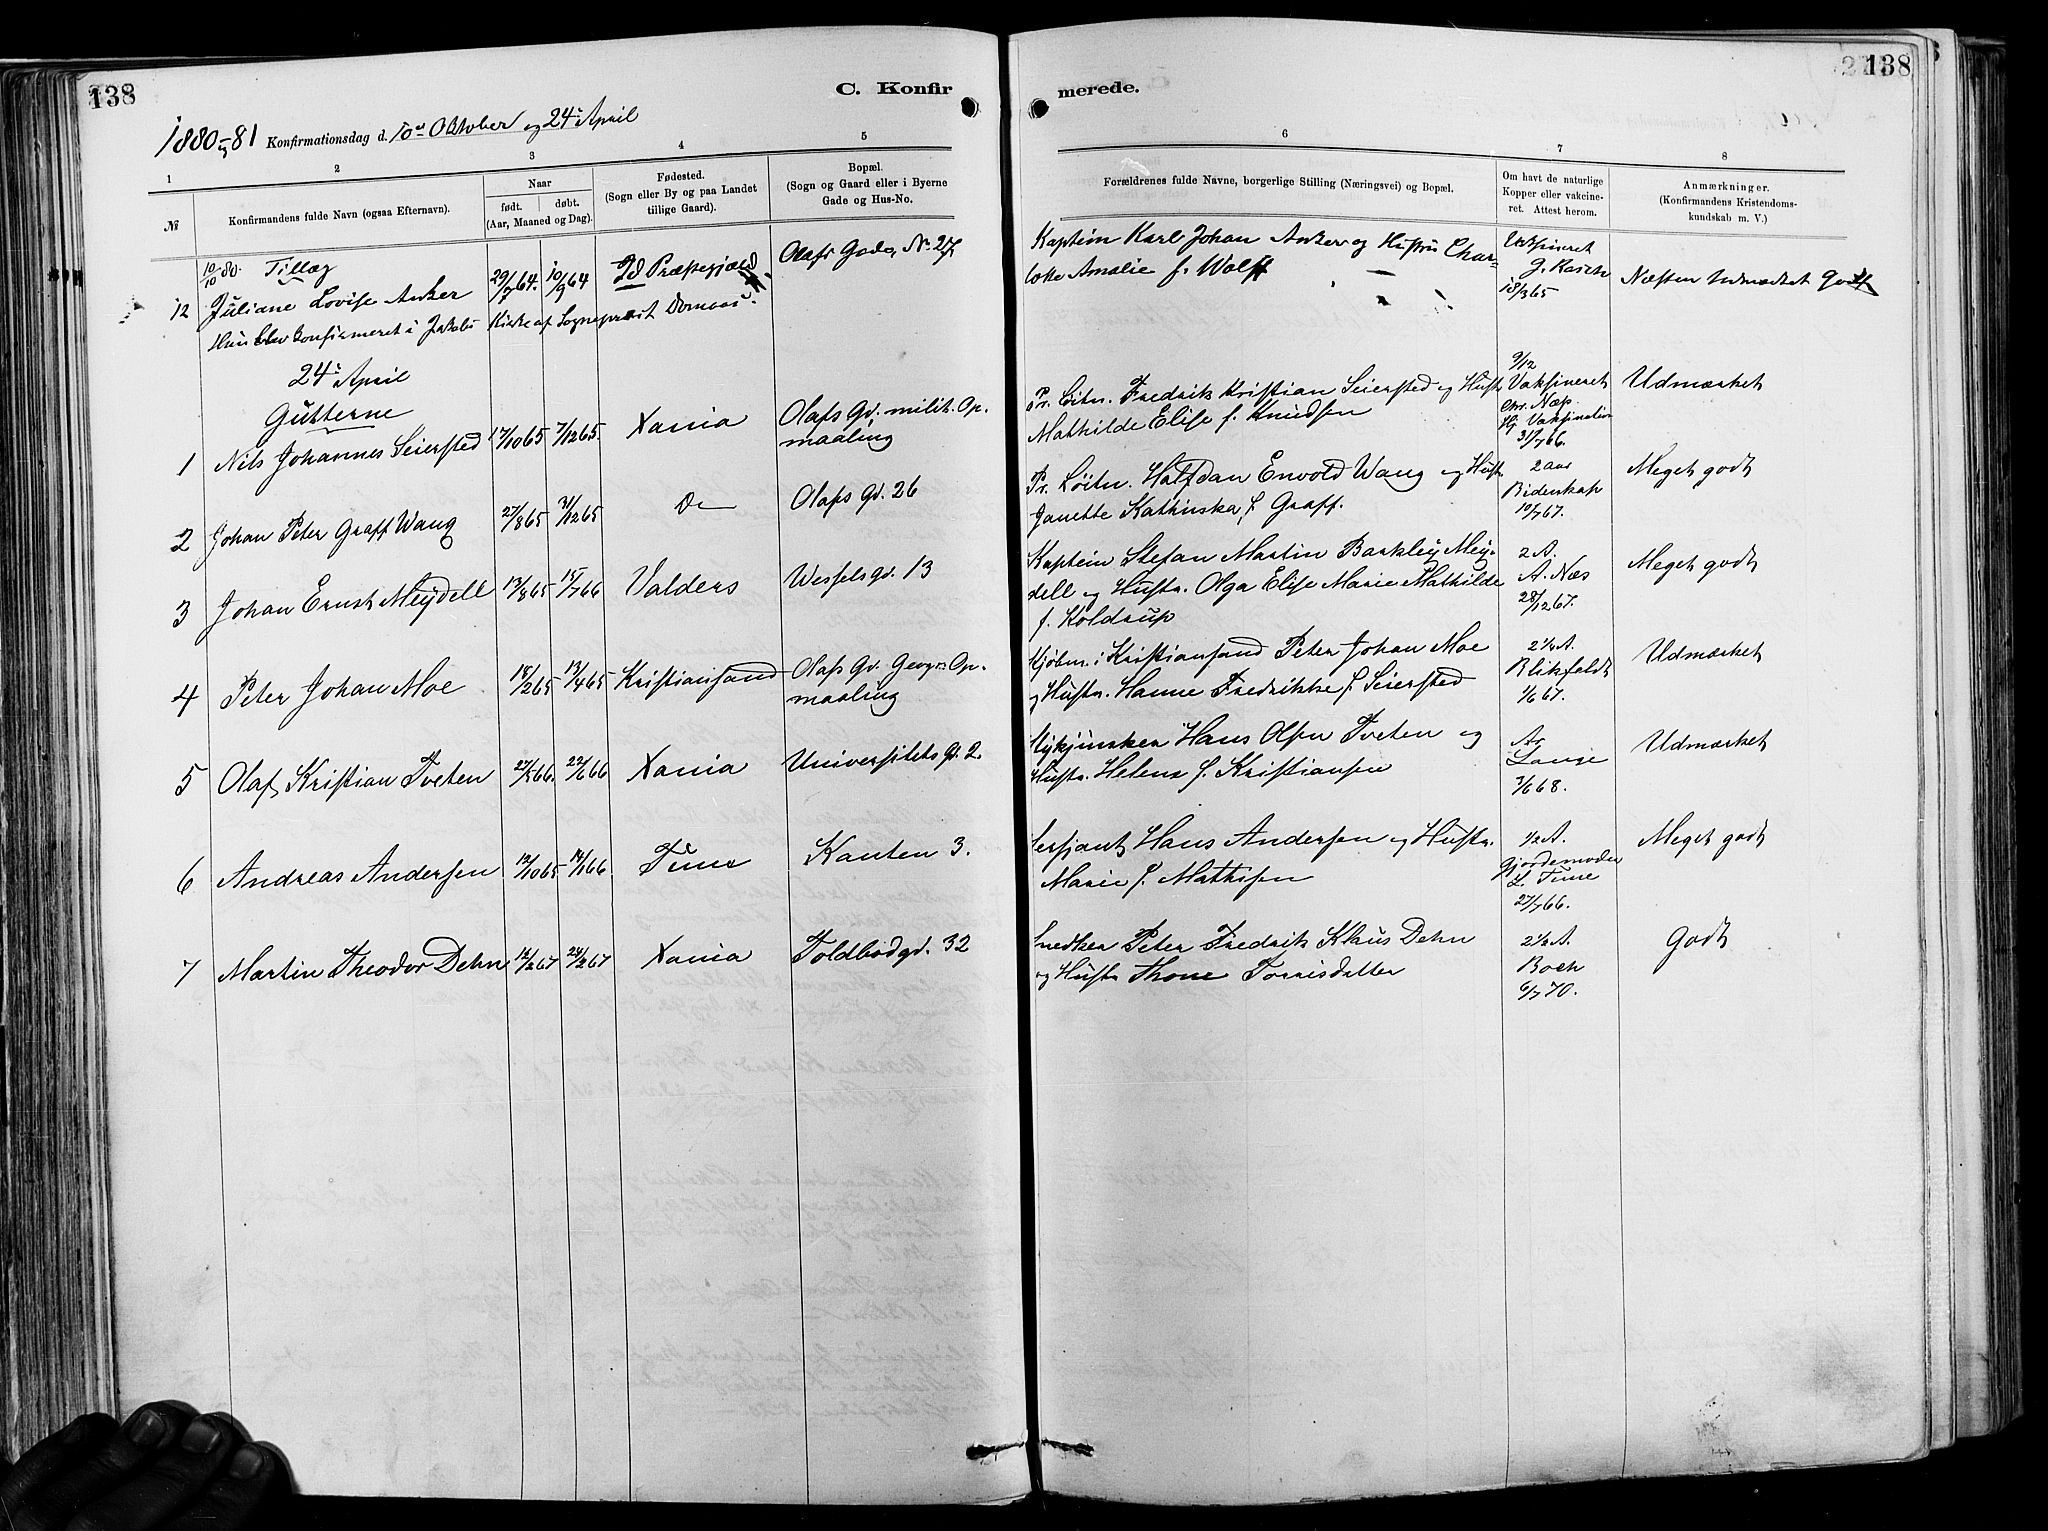 138
C. Konfir
merede.
138
1880-81 Konfirmationsdag d. 10de Oktober og 24de April
1 2 3 4 5
6 7 8
№
Konfirmandens fulde Navn (ogsaa Efternavn).
Naar
født. døbt.
(Aar, Maaned og Dag).
Fødested.
(Sogn eller By og paa Landet
tillige Gaard).
Bopæl.
(Sogn og Gaard eller i Byerne
Gade og Hus-No.
Forældrenes fulde Navne, borgerlige Stilling (Næringsvei) og Bopæl.
Om havt de naturlige
Kopper eller vakcine-
ret. Attest herom.
Anmærkninger.
(Konfirmandens Kristendoms-
kundskab m. V.)
10/10 80. Tillæg
12 Juliane Lovise Anker 29/7 64. 10/9 64 Id Præstegjæld Olafs Gade, № 27
Hun blev konfirmeret i Jakobs Kirke af Sogneprest
Kaptein Karl Johan Anker og Hustru Char-
lotte Amalie f. Wolff
Vaksineret
18/3 65
Næsten Udmærket Godt
24de April
Gutterne
1 Nils Johannes Seiersted 17/10 65 7/12 65. Xania Olafs Gd. milit. Op-
maaling
Pr. Løitn. Fredrik Kristian Seiersted og Hustr
Mathilde Elise f. Knudsen
9/12
Vaksineret
31/7 66.
Udmærket
2 Johan Peter Graff Wang 27/8 65 31/12 65 Do Olafs Gd. 26
Pr. Løitn. Halfdan Envold Wang og Hustr
Janette Kathinska f. Graff.
2 aar
Bidenkap
19/7 67.
Meget godt
3 Johan Ernst Meydell 13/8 65 15/7 66 Valders Wessels gd. 13
Kaptein Stefan Martin Barkley Mey-
dell og Hustr. Olga Elise Marie Mathilde
f. Koldrup
2 A.
A. Næs
28/12 67.
Meget godt
4 Peter Johan Moe 18/2 65 13/4 65 Kristiansand Olafs Gd. Geogr. Op-
maaling
Kjøbm. i Kristiansand Peter Johan Moe
og Hustr. Hanne Fredrikke f. Seiersted
2 1/2 A.
Blikfeldt
1/6 67.
Udmærket
5 Olaf Kristian Tveten 27/5 66. 22/6 66 Xania Universitets gd. 2.
Hans Olsen Tveten og
Hustr. Helene f. Kristiansen
Ar
Lange
3/6 68.
Udmærket
6 Andreas Andersen 12/10 65 14/1 66. Tune Kanten 3.
Sersjant Hans Andersen og Hustr.
Marie f. Mathisen
1/2 A.
Gjordemoder
L. Tune
27/7 66.
Meget godt
7 Martin Theodor Dehn 12/2 67 24/2 67 Xania Toldbodgd. 32
Snedker Peter Fredrik Klaus Dehn
og Hustr Thone Torrisdatter
2 1/2 A.
Boeck
6/7 70.
Godt